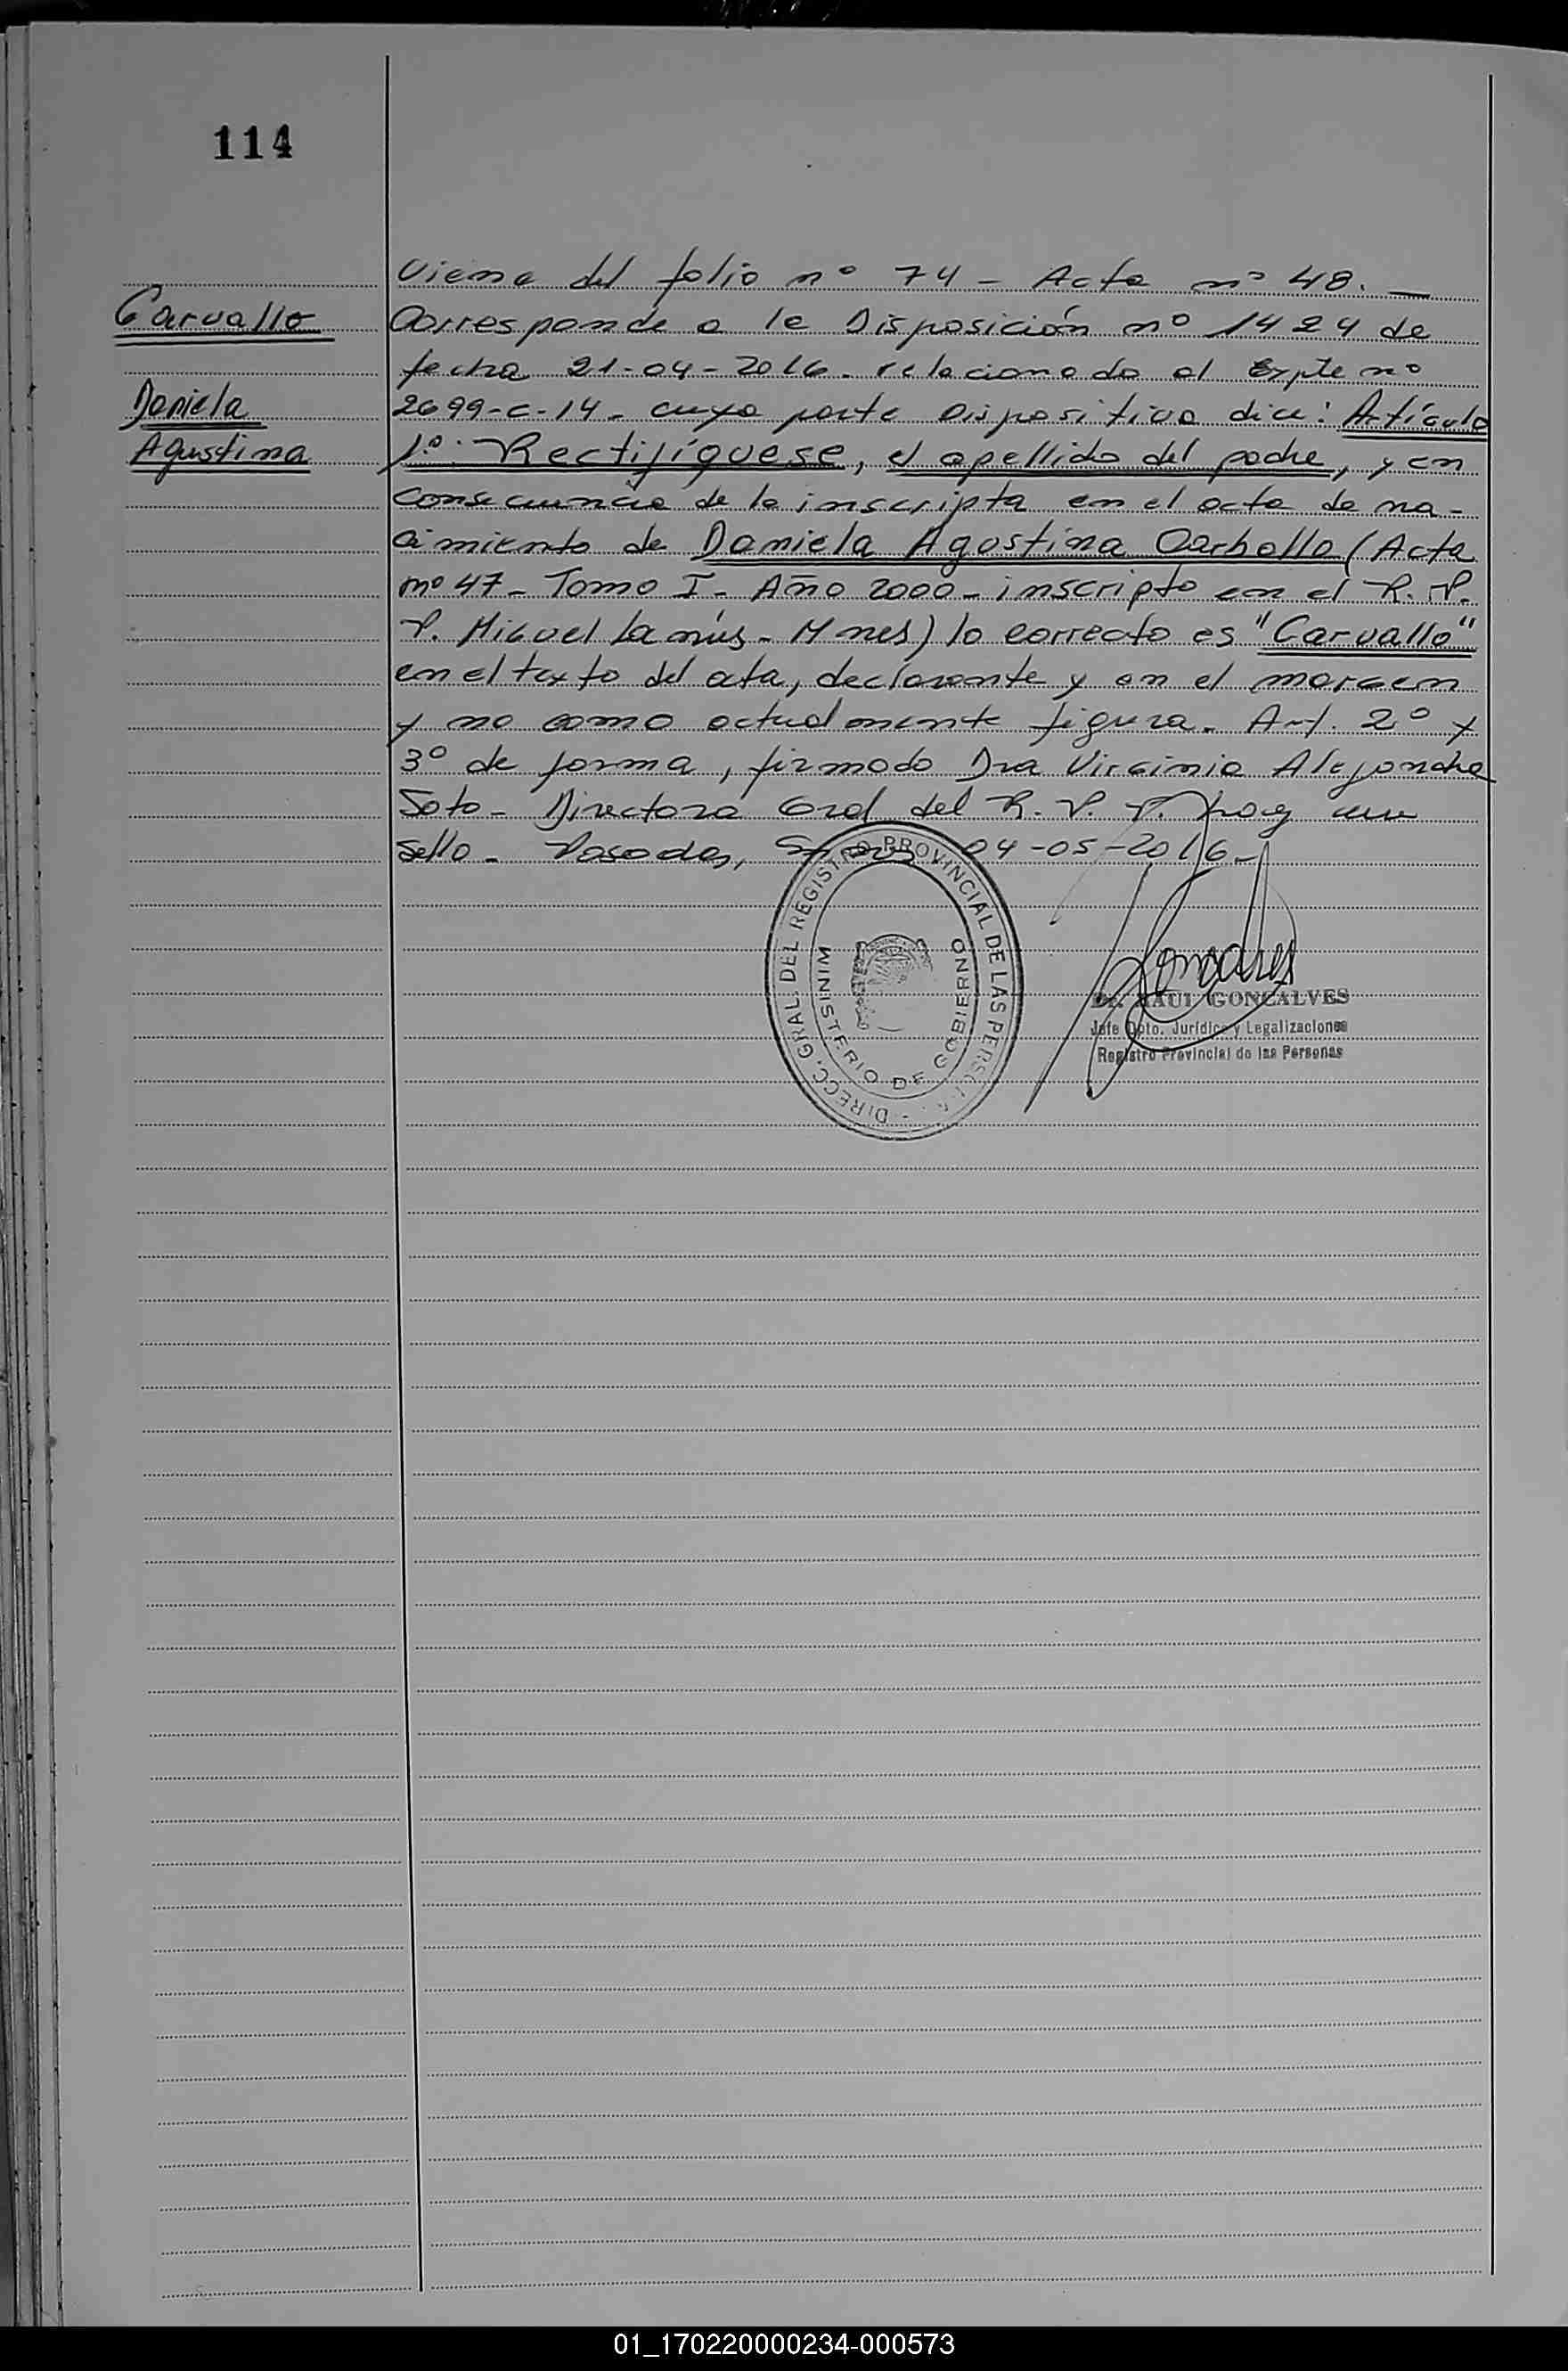 114
Viene del folio nº 74 - Acta nº 48. —
Carvallo
Corresponde a la Disposición nº 1424 de
fecha 21-04-2016. relacionado al Expte nº
Daniela
2699-C-14- cuya parte Dispositiva dice: Artículo
Agustina
1º: Rectifíquese, el apellido del padre, y en
consecuencia de la inscripta en el acta de na-
cimiento de Daniela Agostina Carballo (Acta
nº 47- Tomo I- Año 2000- inscripto en el R. P.
P. Miguel Lanús- Mnes) lo correcto es "Carvallo"
en el texto del acta, declarante y en el margen
y no como actualmente figura. Art. 2º y
3º de forma, firmado Dra Virginia Alejandra
Soto- Directora Gral del R. P. P. hay un
sello- Posadas, 04-05-2016-
DIRECC. GRAL. DEL REGISTRO PROVINCIAL DE LAS PERSONAS
MINISTERIO DE GOBIERNO
Dr. RAUL GONCALVES
Jefe Dpto. Jurídico y Legalizaciones
Registro Provincial de las Personas
01_170220000234-000573